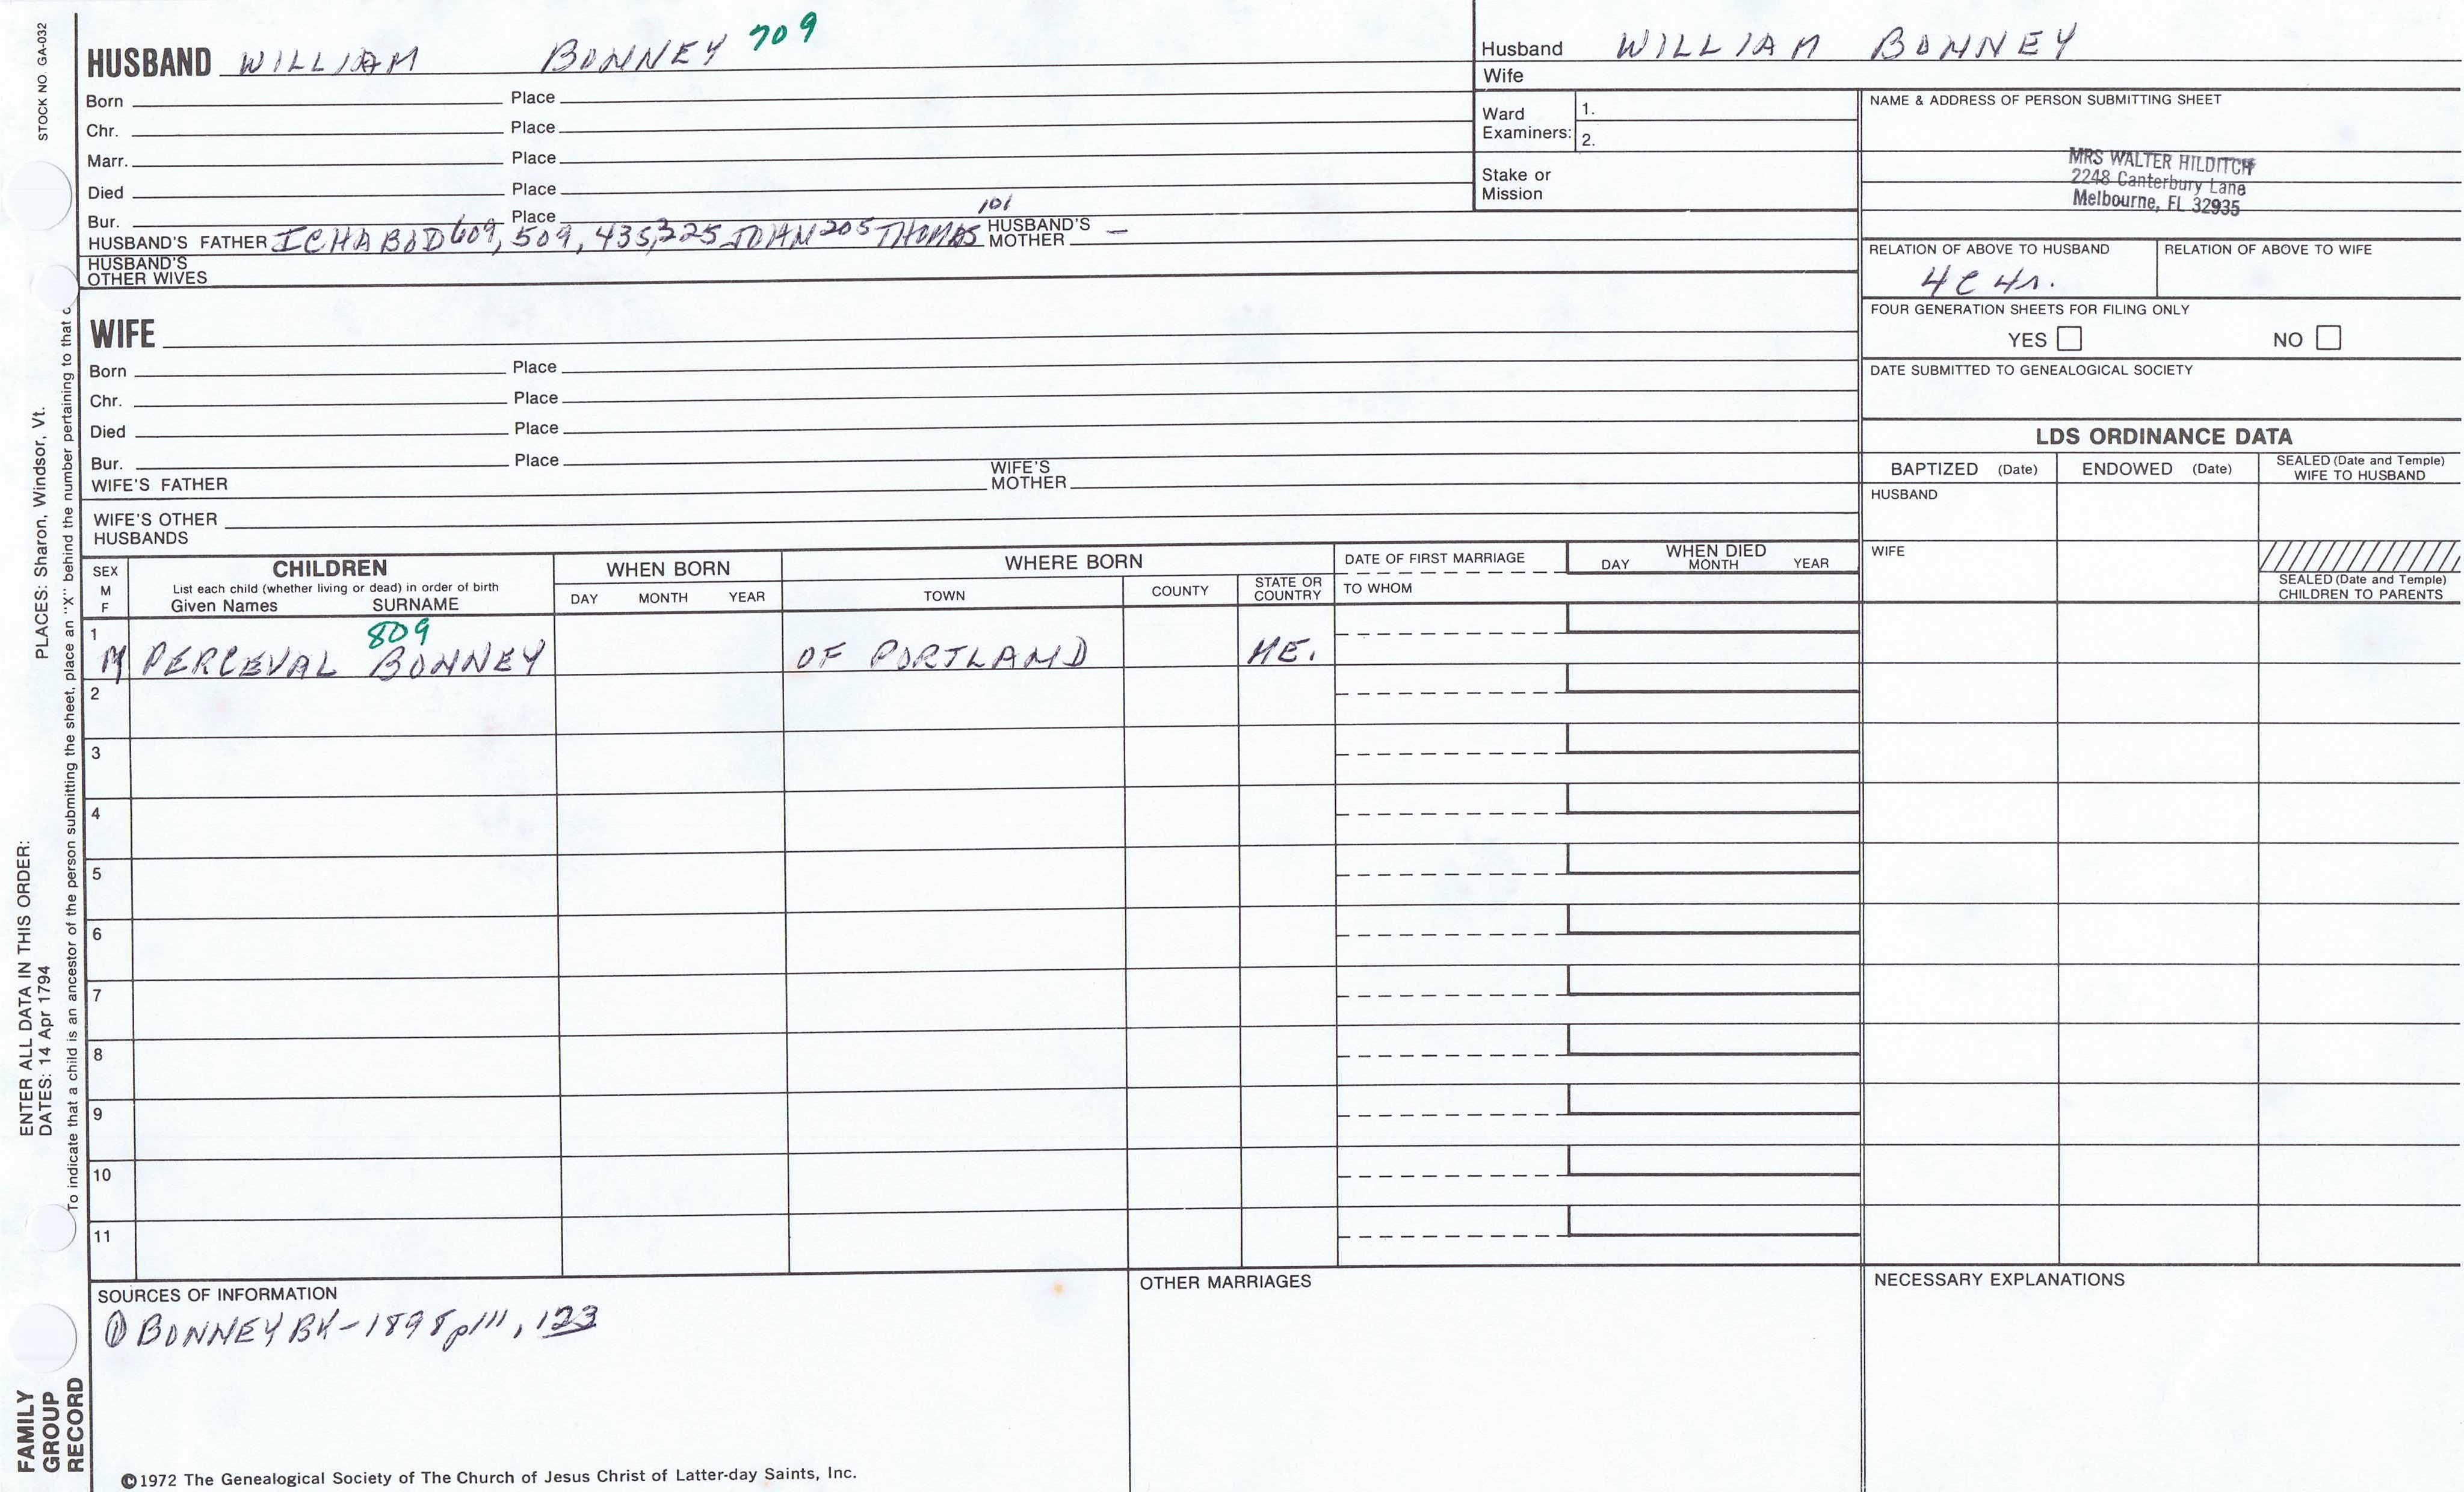 STOCK NO GA-032
HUSBAND WILLIAM BONNEY 709
Born Place
Chr. Place
Marr. Place
Died Place
Bur. Place
HUSBAND'S FATHER ICHABOD 609, 509, 435, 325 JOHN 205 THOMAS 101 HUSBAND'S MOTHER –
HUSBAND'S OTHER WIVES
Husband WILLIAM BONNEY
Wife
Ward Examiners: 1.
2.
Stake or Mission
NAME & ADDRESS OF PERSON SUBMITTING SHEET
MRS WALTER HILDITCH
2248 Canterbury Lane
Melbourne, FL 32935
RELATION OF ABOVE TO HUSBAND
4C4r.
RELATION OF ABOVE TO WIFE
FOUR GENERATION SHEETS FOR FILING ONLY
YES NO
DATE SUBMITTED TO GENEALOGICAL SOCIETY
WIFE
Born Place
Chr. Place
Died Place
Bur. Place
WIFE'S FATHER WIFE'S MOTHER
WIFE'S OTHER HUSBANDS
LDS ORDINANCE DATA
BAPTIZED (Date) ENDOWED (Date) SEALED (Date and Temple) WIFE TO HUSBAND
HUSBAND
WIFE
SEALED (Date and Temple) CHILDREN TO PARENTS
SEX M F
CHILDREN
List each child (whether living or dead) in order of birth
Given Names SURNAME
WHEN BORN
DAY MONTH YEAR
WHERE BORN
TOWN COUNTY STATE OR COUNTRY
DATE OF FIRST MARRIAGE
TO WHOM
WHEN DIED
DAY MONTH YEAR
809
1 M PERCEVAL BONNEY OF PORTLAND ME.
2
3
4
5
6
7
8
9
10
11
SOURCES OF INFORMATION
① BONNEY BK-1898 p111, 123
OTHER MARRIAGES
NECESSARY EXPLANATIONS
©1972 The Genealogical Society of The Church of Jesus Christ of Latter-day Saints, Inc.
ENTER ALL DATA IN THIS ORDER:
DATES: 14 Apr 1794 PLACES: Sharon, Windsor, Vt.
To indicate that a child is an ancestor of the person submitting the sheet, place an "X" behind the number pertaining to that c
FAMILY
GROUP
RECORD